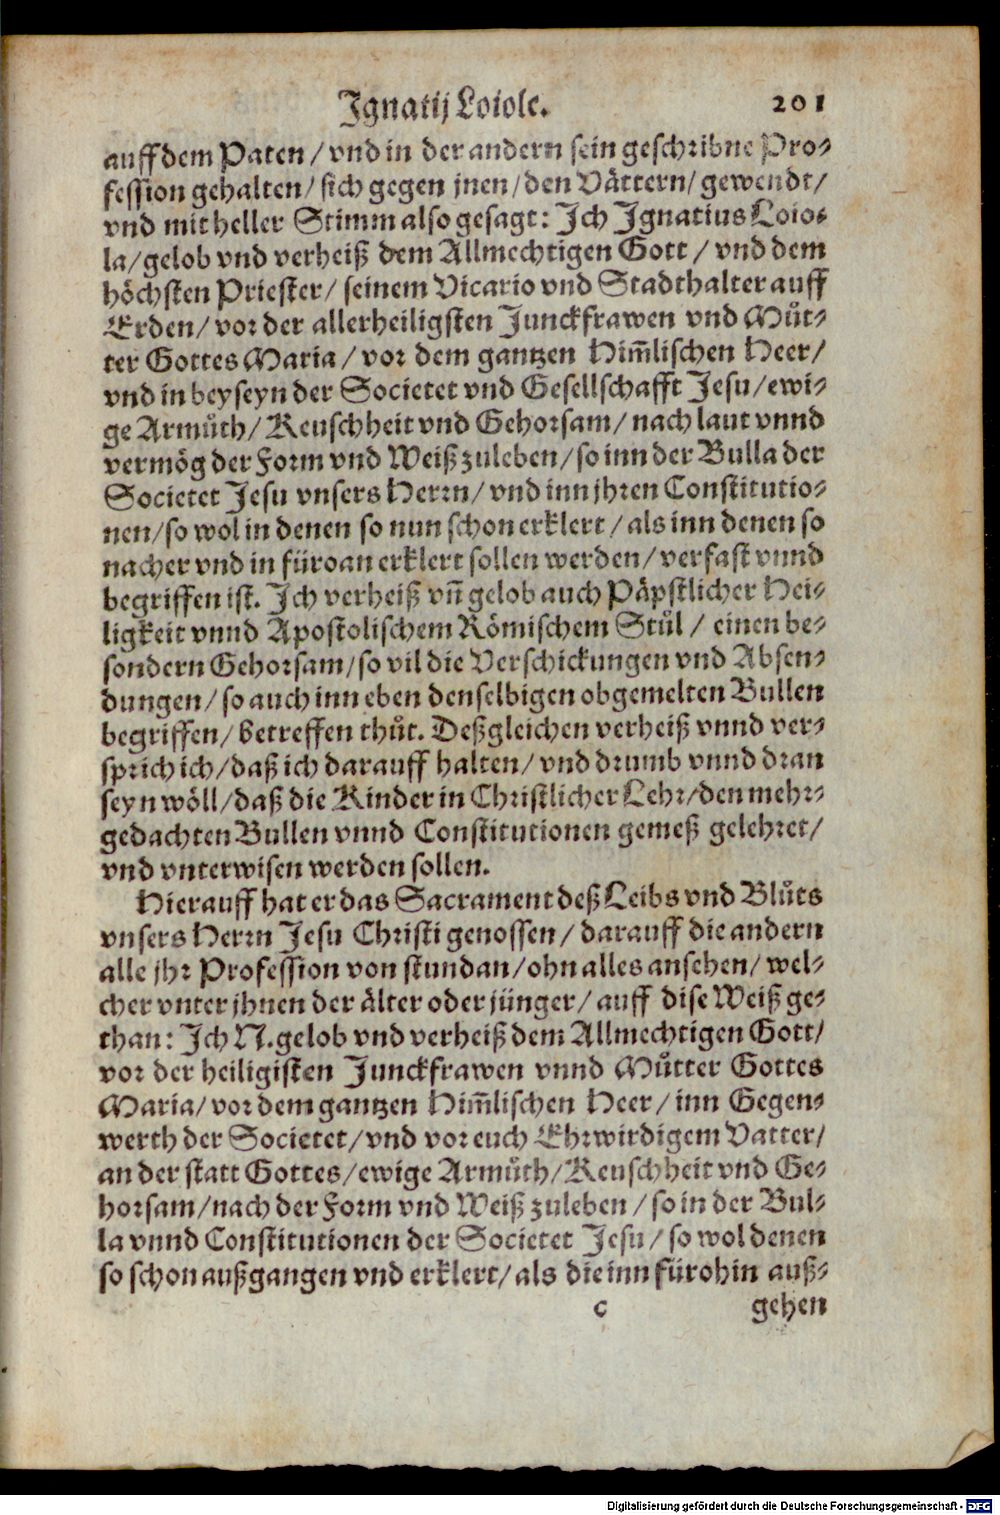 Ignatij Loiole. 201
auff dem Paten / vnd in der andern sein geschribne Pro-
fession gehalten / sich gegen jnen / den Vättern / gewendt /
vnd mit heller Stimm also gesagt: Ich Ignatius Loio-
la / gelob vnd verheiß dem Allmechtigen Gott / vnd dem
höchsten Priester / seinem Vicario vnd Stadthalter auff
Erden / vor der allerheiligsten Junckfrawen vnd Můt-
ter Gottes Maria / vor dem gantzen Him̃lischen Heer /
vnd in beyseyn der Societet vnd Gesellschafft Jesu / ewi-
ge Armůth / Keuschheit vnd Gehorsam / nach laut vnnd
vermög der Form vnd Weiß zuleben / so inn der Bulla der
Societet Jesu vnsers Herrn / vnd inn jhren Constitutio-
nen / so wol in denen so nun schon erklert / als inn denen so
nacher vnd in füroan erklert sollen werden / verfast vnnd
begriffen ist. Ich verheiß vñ gelob auch Päpstlicher Hei-
ligkeit vnnd Apostolischem Römischem Stůl / einen be-
sondern Gehorsam / so vil die Verschickungen vnd Absen-
dungen / so auch inn eben denselbigen obgemelten Bullen
begriffen / betreffen thůt. Deßgleichen verheiß vnnd ver-
sprich ich / daß ich darauff halten / vnd drumb vnnd dran
seyn wöll / daß die Kinder in Christlicher Lehr / den mehr-
gedachten Bullen vnnd Constitutionen gemeß gelehret /
vnd vnterwisen werden sollen.
Hierauff hat er das Sacrament deß Leibs vnd Blůts
vnsers Herrn Jesu Christi genossen / darauff die andern
alle jhr Profession von stundan / ohn alles ansehen / wel-
cher vnter jhnen der älter oder jünger / auff dise Weiß ge-
than: Ich N. gelob vnd verheiß dem Allmechtigen Gott /
vor der heiligisten Junckfrawen vnnd Můtter Gottes
Maria / vor dem gantzen Him̃lischen Heer / inn Gegen-
werth der Societet / vnd vor euch Ehrwirdigem Vatter /
an der statt Gottes / ewige Armůth / Keuschheit vnd Ge-
horsam / nach der Form vnd Weiß zuleben / so in der Bul-
la vnnd Constitutionen der Societet Jesu / so wol denen
so schon außgangen vnd erklert / als die inn fürohin auß-
c gehen
Digitalisierung gefördert durch die Deutsche Forschungsgemeinschaft - DFG